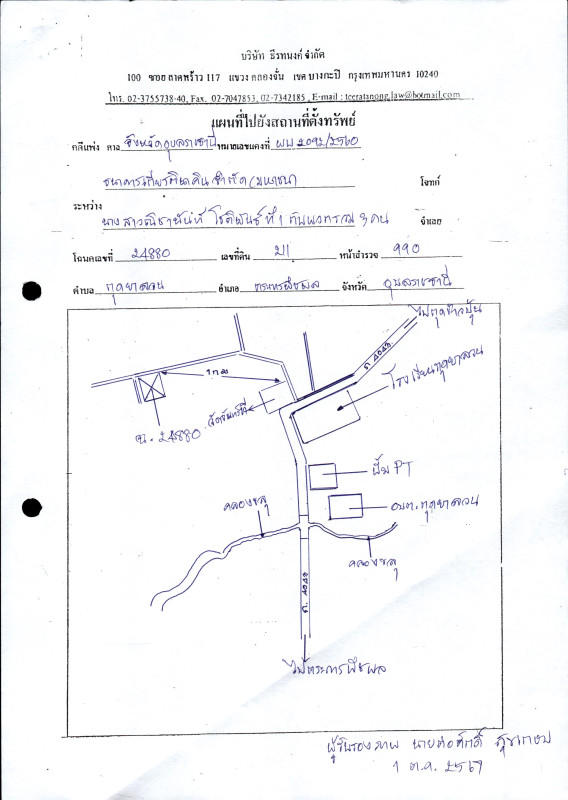 บริษัท ธีรทนงค์ จำกัด
100 ซอย ลาดพร้าว 117 แขวง คลองจั่น เขต บางกะปิ กรุงเทพมหานคร 10240
โทร. 02-3755738-40, Fax. 02-7047853, 02-7342185 , E-mail : teeratanong.law@hotmail.com
แผนที่ไปยังสถานที่ตั้งทรัพย์
คดีแพ่ง ศาล จังหวัดอุบลราชธานี หมายเลขแดงที่ ผบ 2092/2560
ธนาคารเกียรตินาคิน จำกัด (มหาชน) โจทก์
ระหว่าง
นางสาวณิชานันท์ โชติพันธ์ ที่ 1 กับพวกรวม 3 คน จำเลย
โฉนดเลขที่ 24880 เลขที่ดิน 21 หน้าสำรวจ 990
ตำบล กุดยาลวน อำเภอ ตระการพืชผล จังหวัด อุบลราชธานี
ไปกุดข้าวปุ้น
ถ. 2049
1 กม
โรงเรียนกุดยาลวน
ฉ. 24880
ปั๊ม PT
อบต. กุดยาลวน
คลองชลฯ
คลองชลฯ
ถ. 2049
ไปตระการพืชผล
ผู้รับรองภาพ
1 ต.ค. 2567